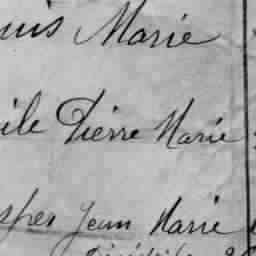 uis Marie
ile Pierre Marie
sper Jean Marie